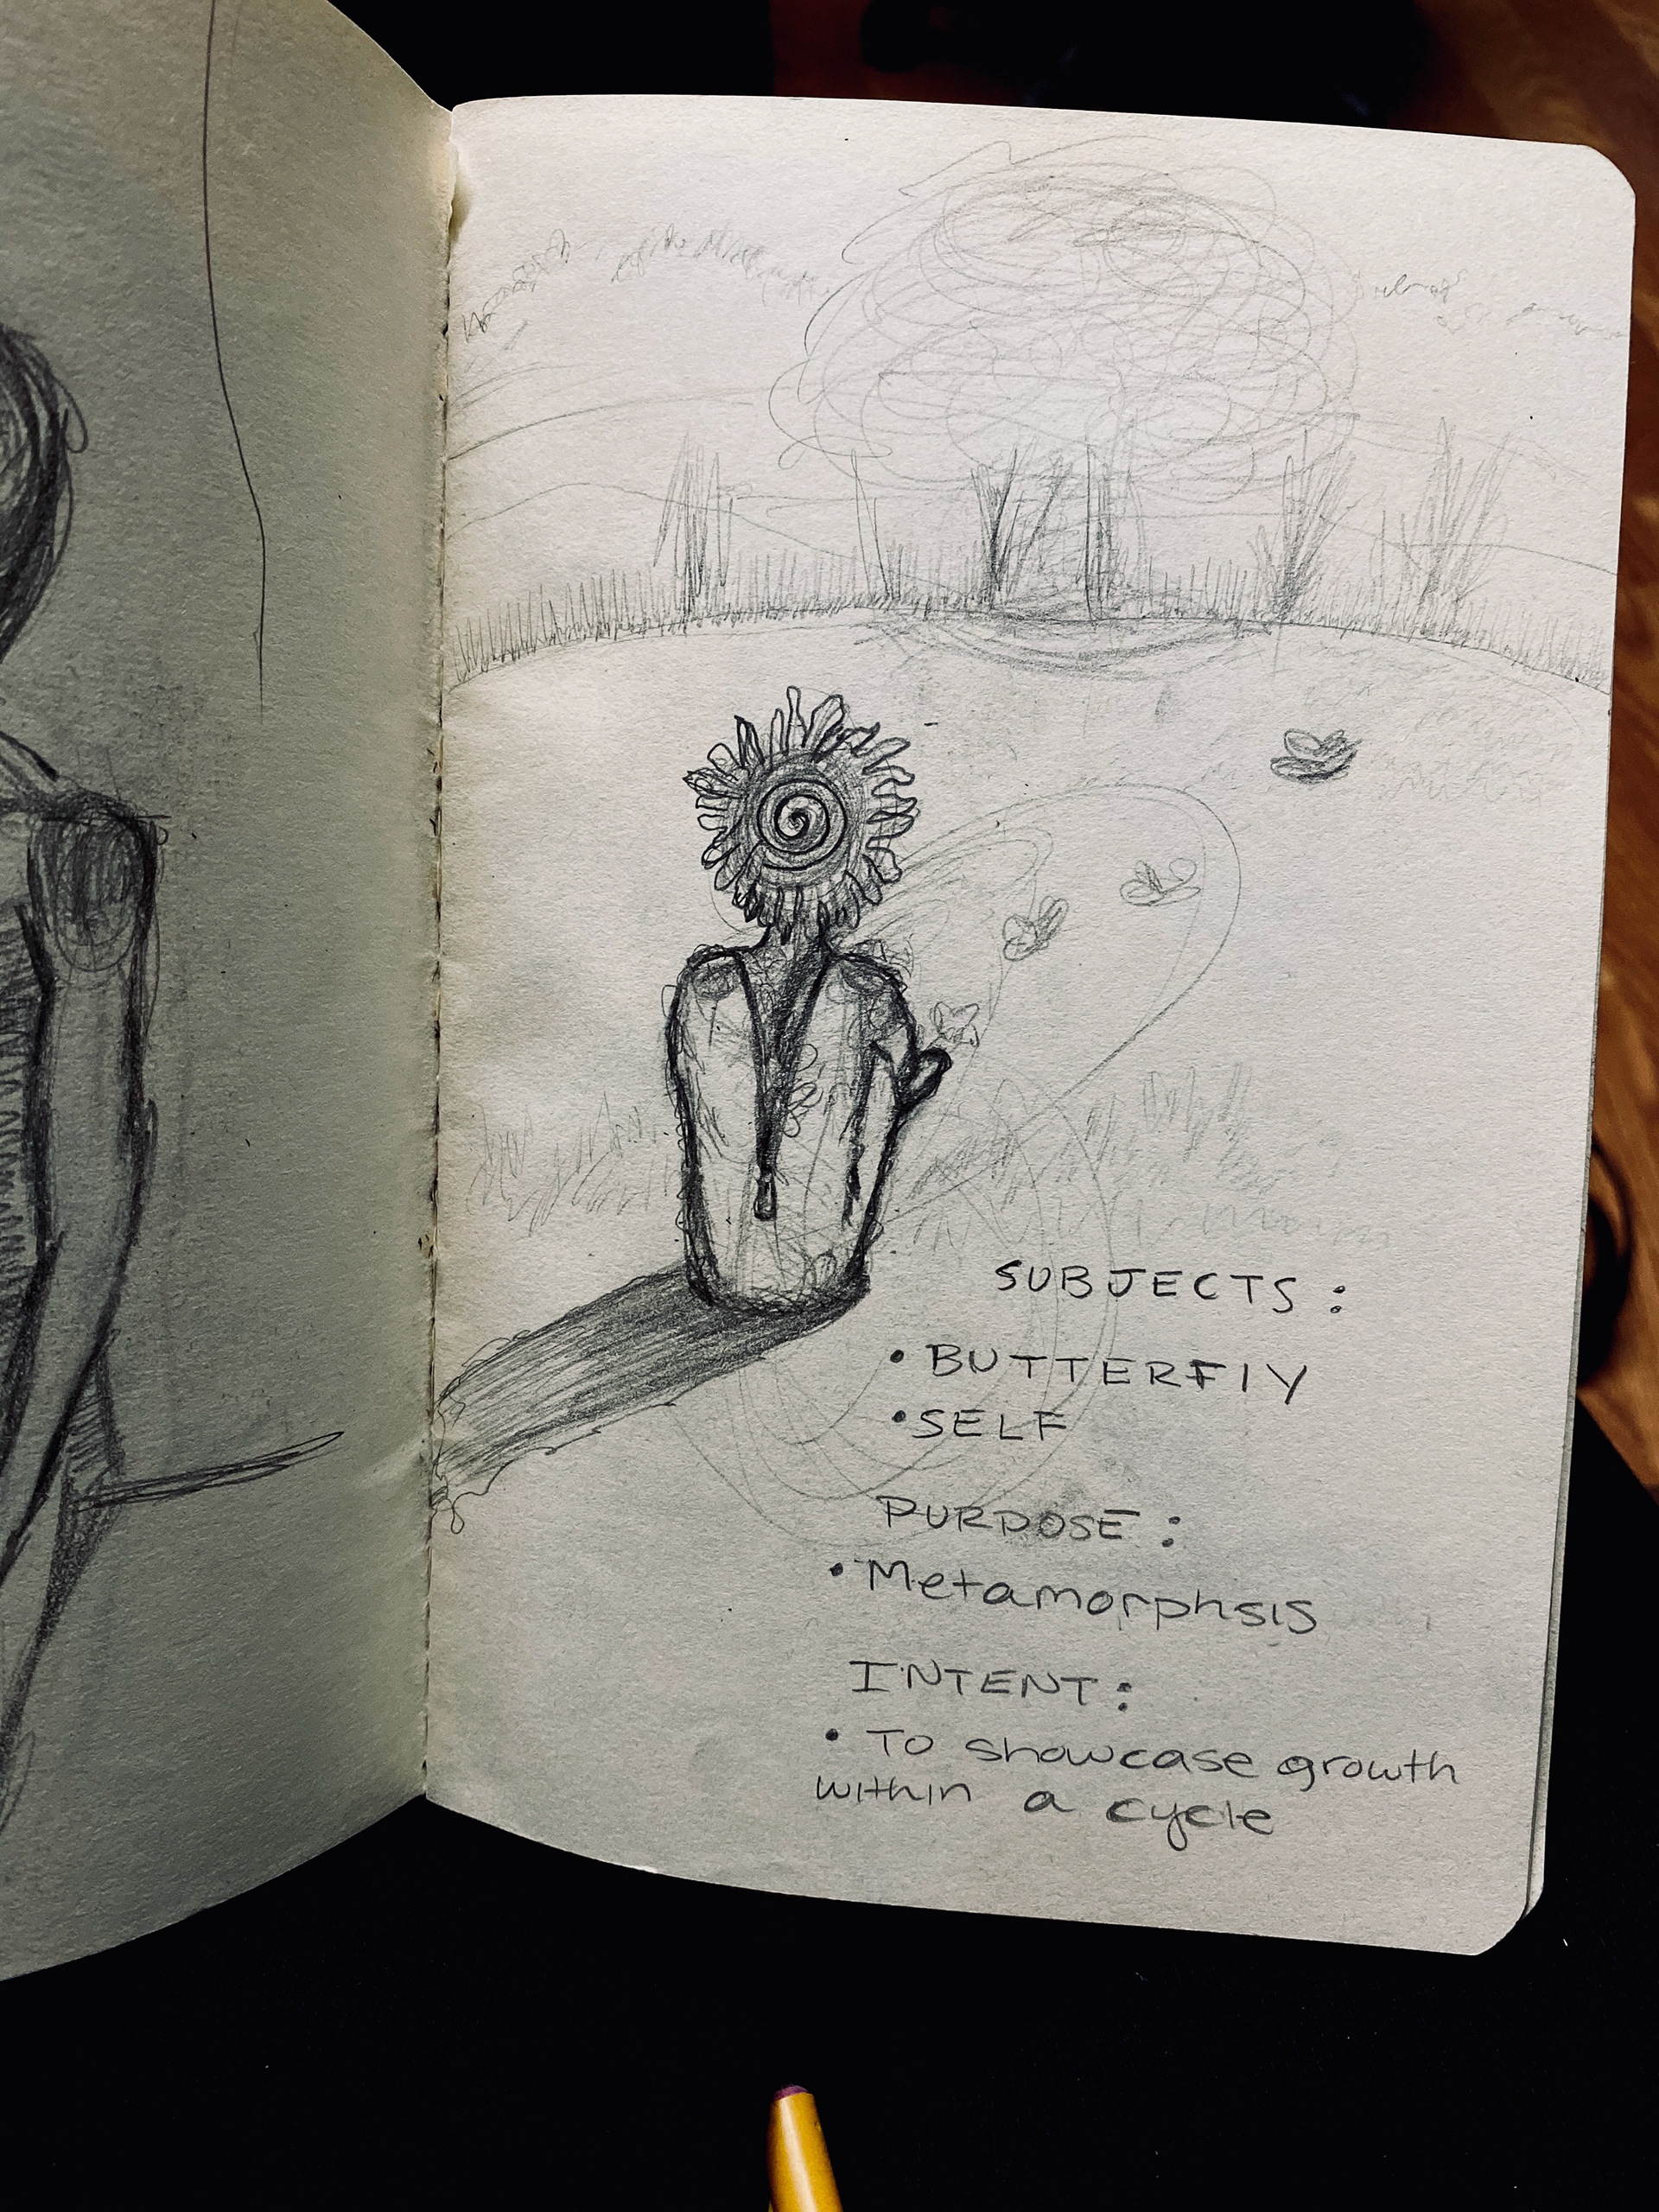 SUBJECTS :
• BUTTERFIY
• SELF
PURPOSE :
• Metamorphsis
INTENT :
• To showcase growth
within a cycle